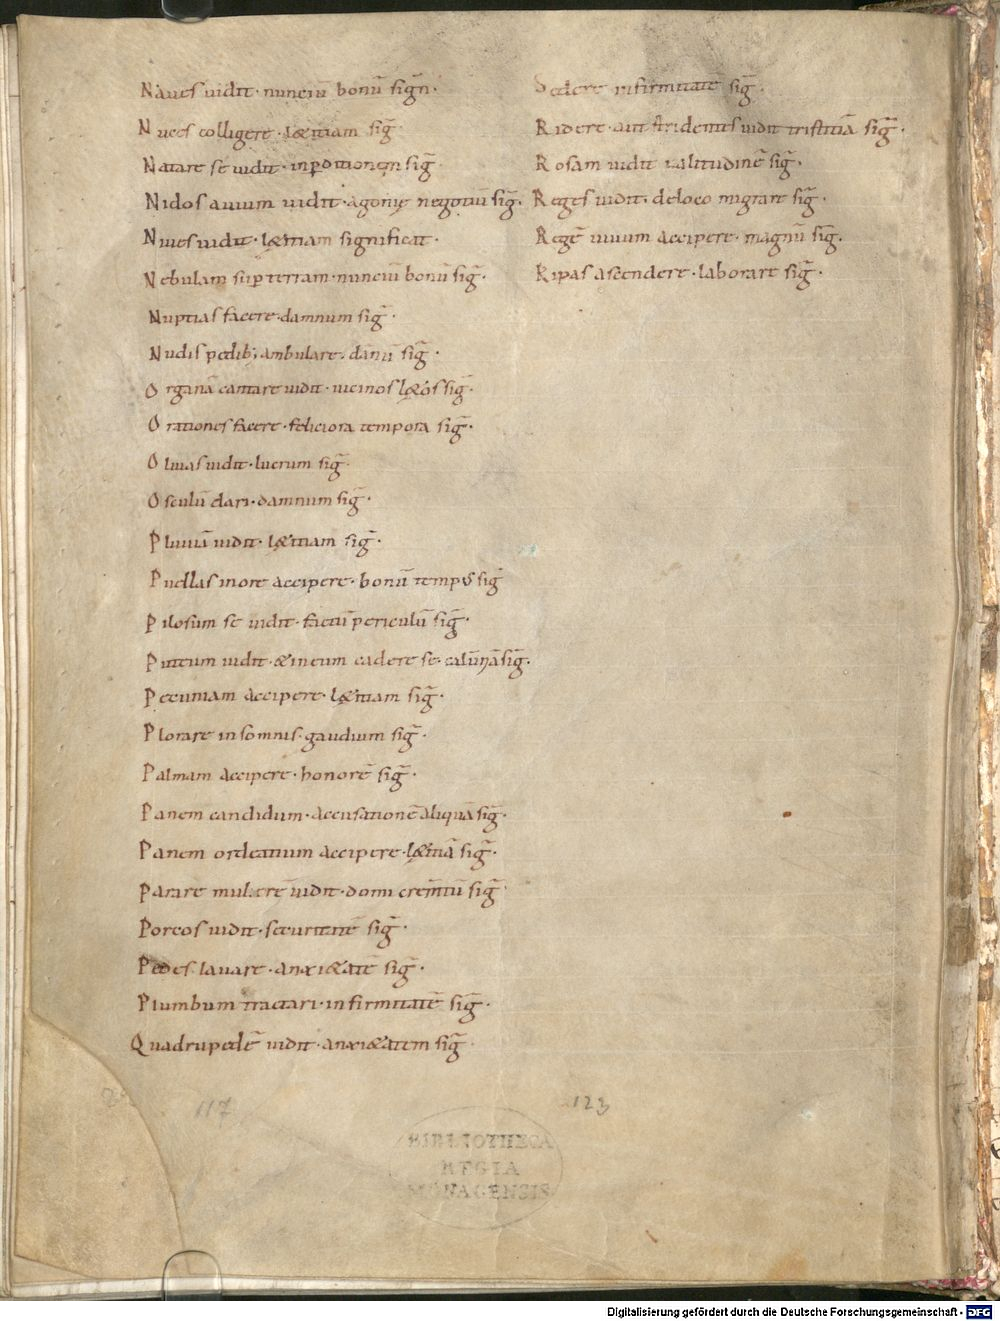 Naues uidit· nunciū bonū sign̄·
Nuces colligere· l&itiam sig̅
Natare se uidit· inp̱ditionem sig̅·
Nidos auium uidit· agonię negotiū sig̅·
Niues uidit· l&itiam significat·
Nebulam sup̱ terram· nunciū bonū sig̅·
Nuptias facere· damnum sig̅·
Nudis pedib; ambulare· dānū sig̅·
Organā cantare uidit· uicinos l&ós sig̅·
Orationes facere· feliciora tempora sig̅·
Oliuas uidit· lucrum sig̅·
Osculū dari· damnum sig̅·
Pluuiā uidit· l&itiam sig̅·
Puellas in ore accipere· bonū temp᷒ sig̅
Pilosum se uidit· factū periculū sig̅·
Puteum uidit· & in eum cadere se· calūniā sig̅·
Pecuniam accipere· l&itiam sig̅·
Plorare in somnis· gaudium sig̅·
Palmam accipere· honorē sig̅·
Panem candidum· accusationē aliquā sig̅·
Panem ordeatium accipere· l&itiā sig̅·
Parare mulierē uidit· domi crem̄tū sig̅·
Porcos uidit· securitatē sig̅·
Pedes lauare· anxi&atē sig̅·
Plumbum tractari· infirmitatē sig̅·
Quadrupedē uidit· anxi&atem sig̅·
Sedere infirmitatē sig̅·
Ridere aut stridentes uidit tristitiā sig̅·
Rosam uidit ualitudinē sig̅·
Reges uidit· de loco migrare sig̅·
Regē uiuum accipere· magnū sig̅·
Ripas ascendere· laborare sig̅·
117
123
BIBLIOTHECA
REGIA
MONACENSIS
Digitalisierung gefördert durch die Deutsche Forschungsgemeinschaft - DFG